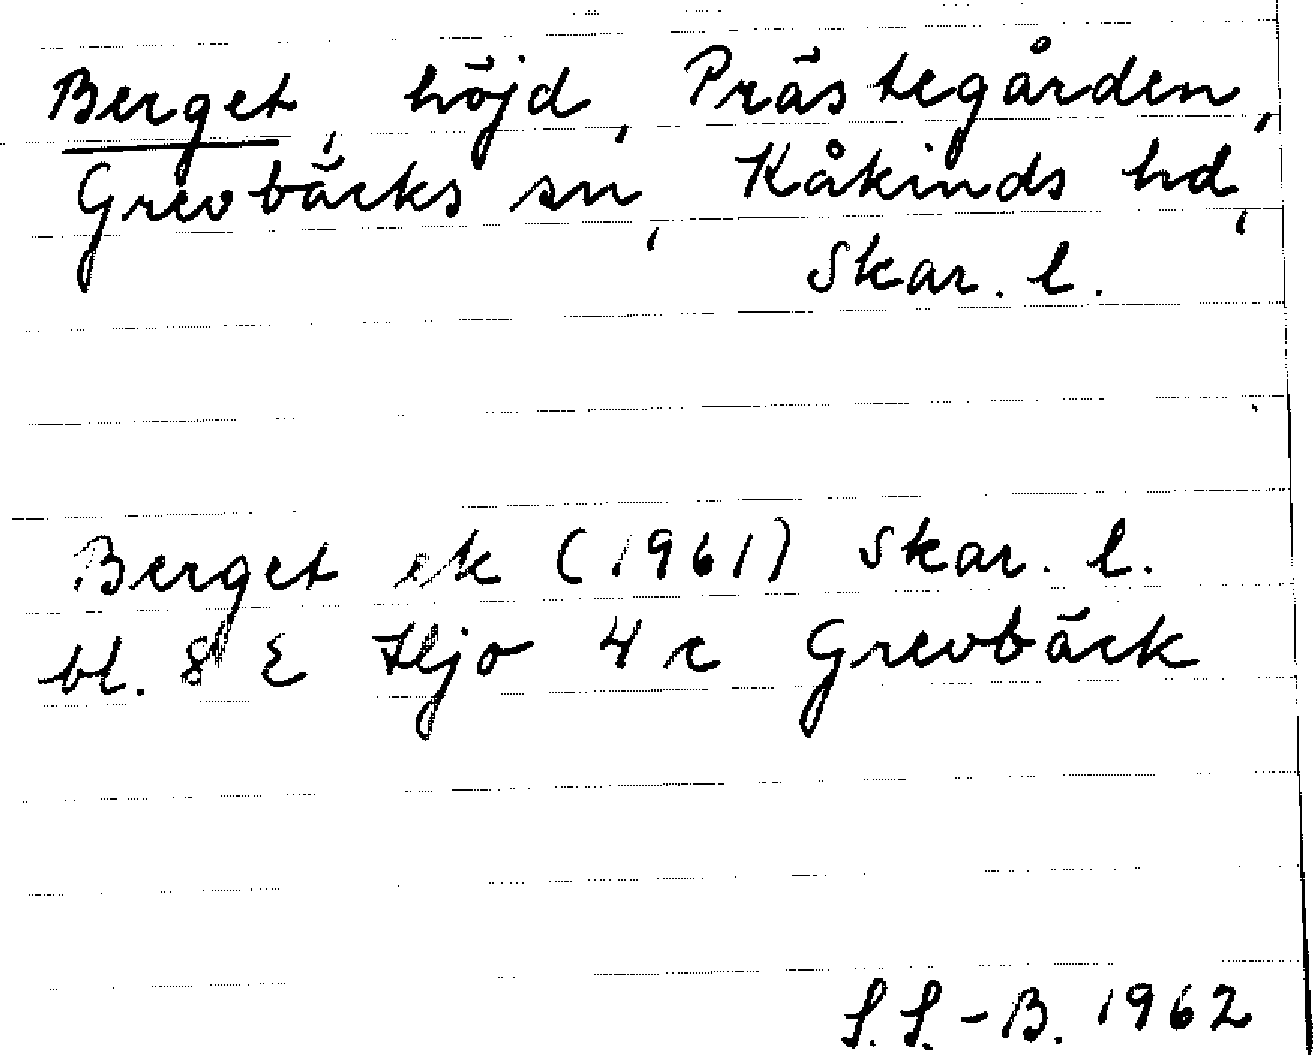 Berget, höjd, Prästegården,
Grevbäcks sn, Kåkinds hd,
Skar. l.
Berget ek (1961) Skar. l.
bl. 8 E Hjo 4 c Grevbäck
S.S.-B. 1962